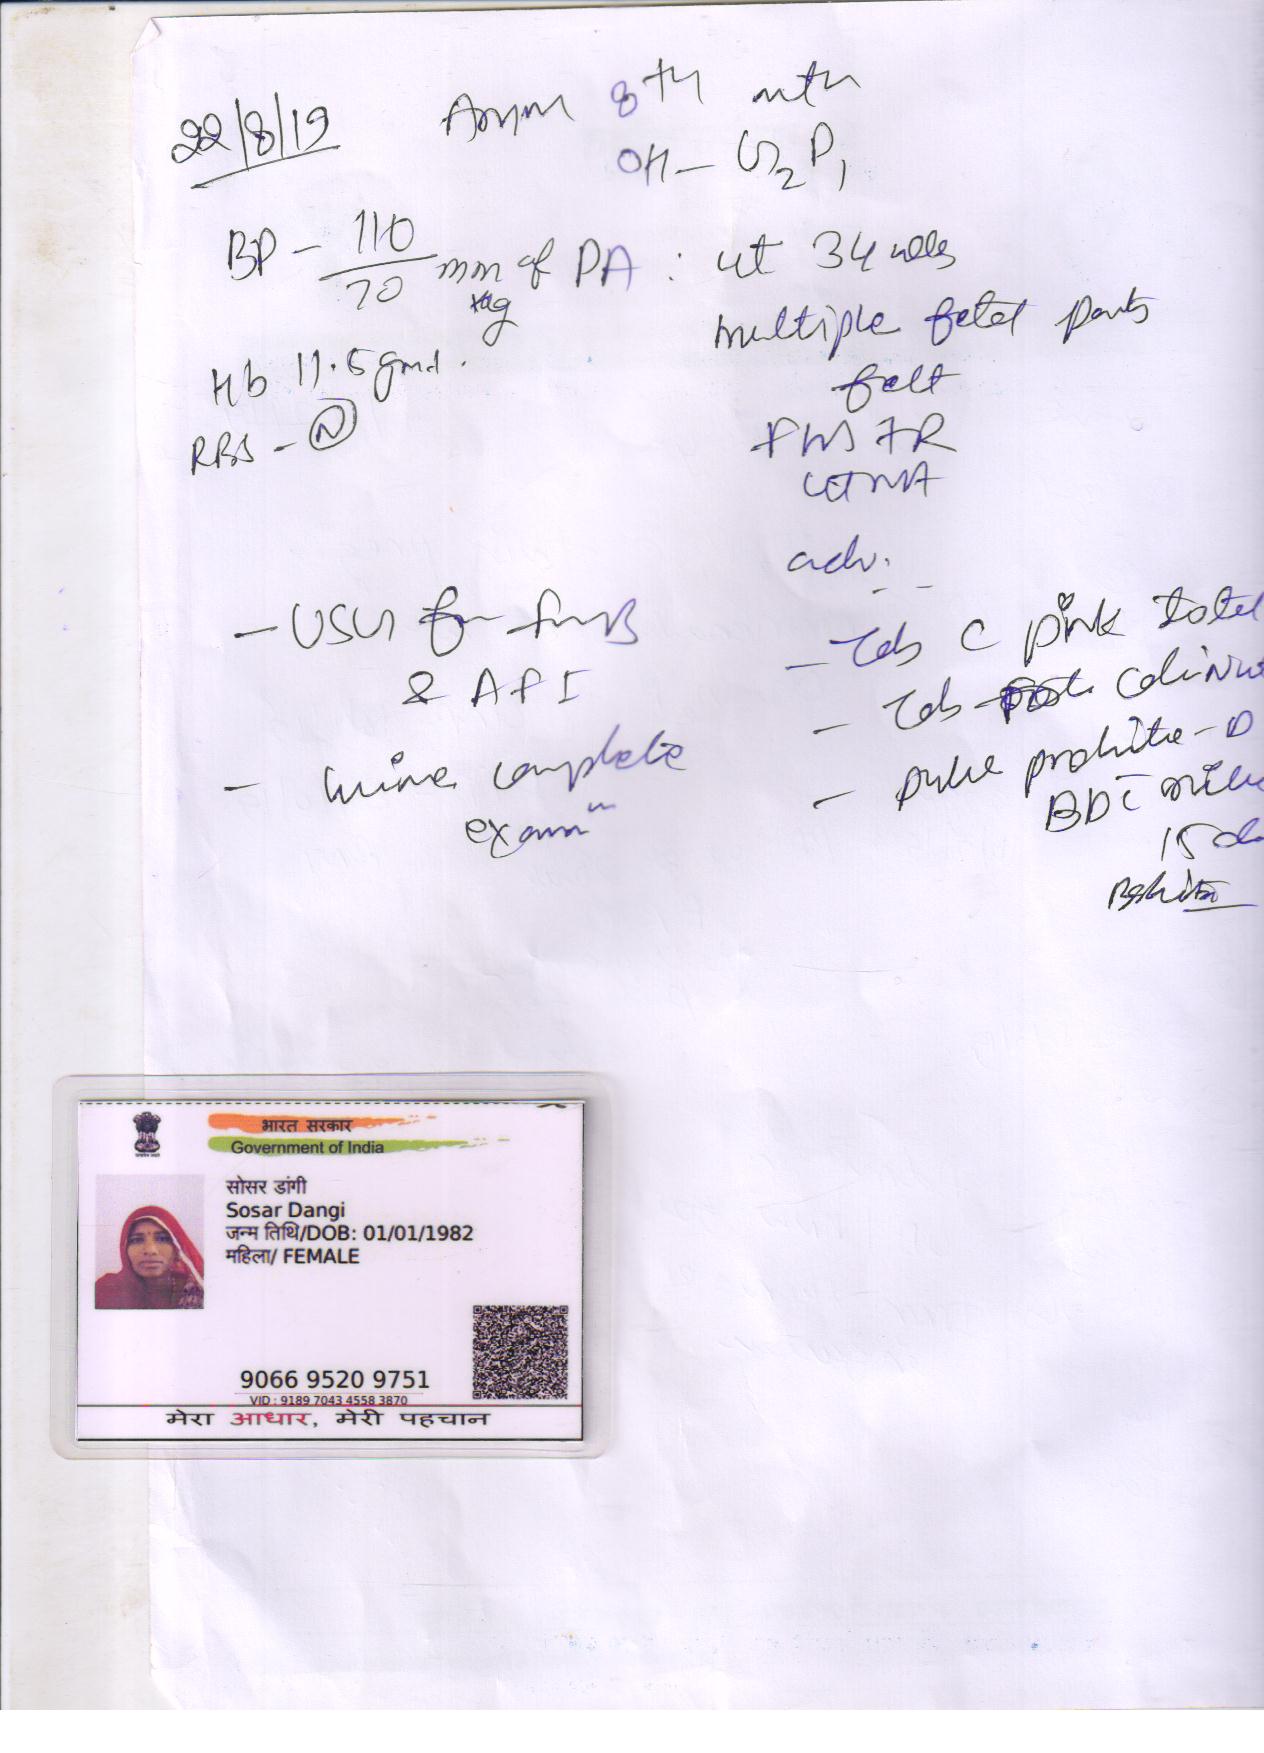 22/8/19
8th mth
OH - G2P1
BP - 110/70 mm of Hg
PA : ut 34 wks
multiple fetal parts
felt
Hb 11.5 gm
RBS - N
FHS FR
adv.
- USG for
& AFI
- Urine complete
examn
- Tab C pink total
- Tab
- pulv prohite - D
BD c milk
15 d
भारत सरकार
Government of India
सोसर डांगी
Sosar Dangi
जन्म तिथि/DOB: 01/01/1982
महिला/ FEMALE
9066 9520 9751
VID : 9189 7043 4558 3870
मेरा आधार, मेरी पहचान